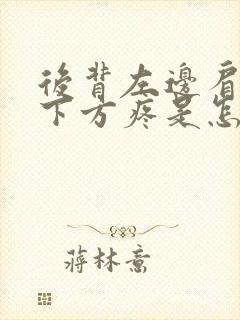 後背左邊肩
下方疼是怎
蔣林熹